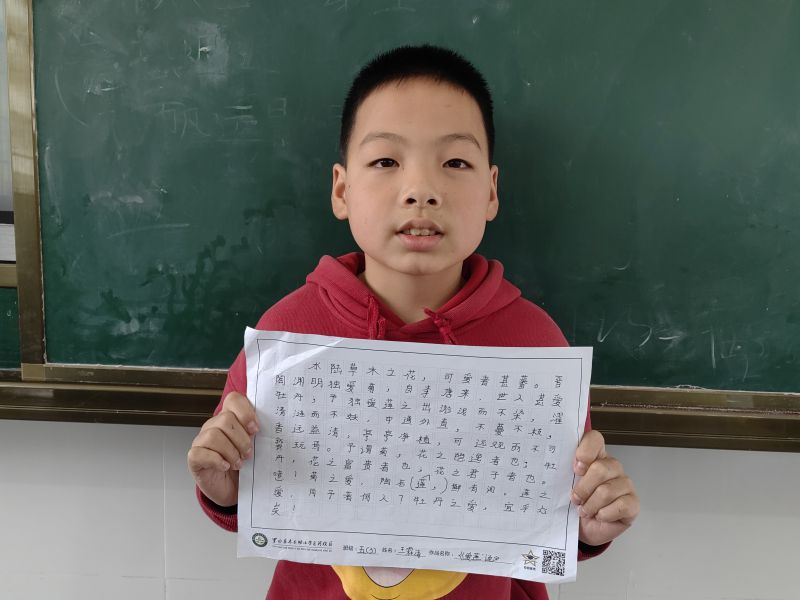 水陆草木之花，可爱者甚蕃。晋
陶渊明独爱菊，自李唐来，世人甚爱
牡丹；予独爱莲之出淤泥而不染，濯
清涟而不妖，中通外直，不蔓不枝，
香远益清，亭亭净植，可远观而不可
亵玩焉。予谓菊，花之隐逸者也；牡
丹，花之富贵者也；花之君子者也。
噫！菊之爱，陶后(莲，)鲜有闻。莲之
爱，同予者何人？牡丹之爱，宜乎众
矣！
班级：五(3) 姓名：王霖涛 作品名称：《爱莲说》